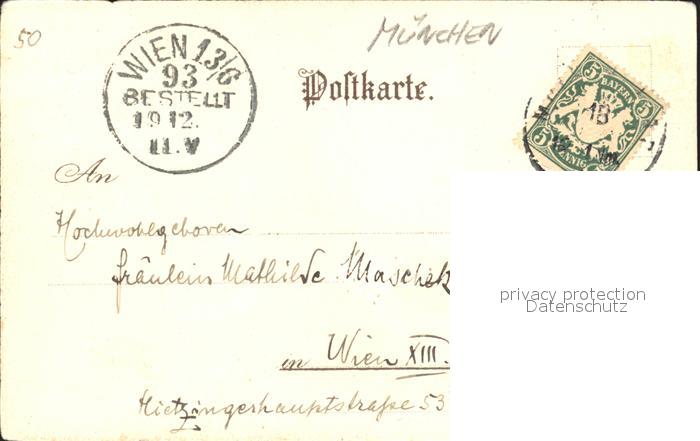 50
MÜNCHEN
WIEN 13/6
93
BESTELLT
19.12.
II.V
Postkarte.
5 BAYERN 5
5 PFENNIG
18
An
Hochwohlgeboren
Fräulein Mathilde Maschek
privacy protection
Datenschutz
in Wien XIII.
Hietzingerhauptstraße 53